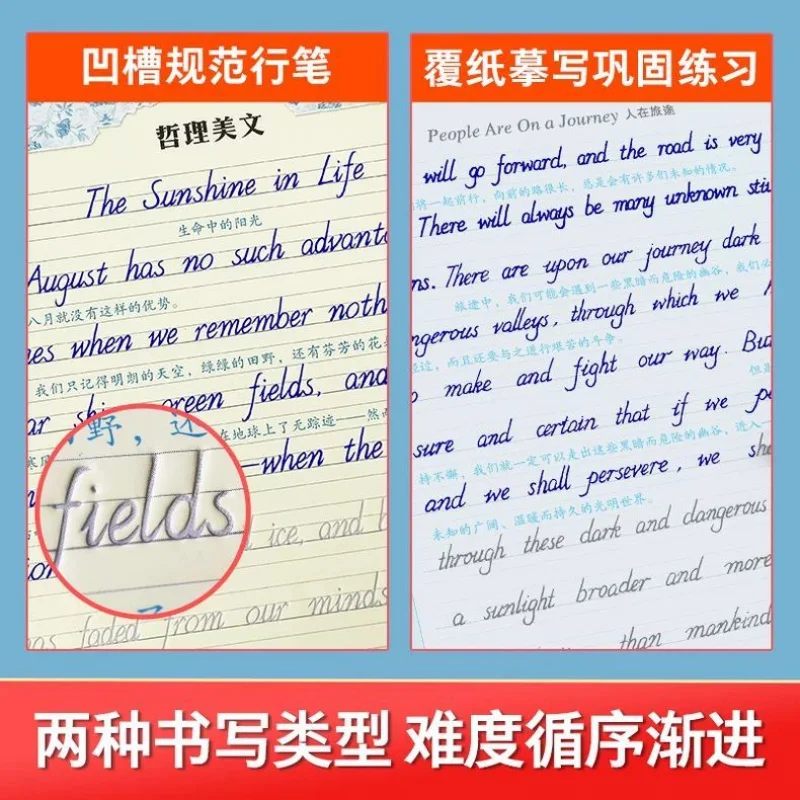 凹槽规范行笔
哲理美文
The Sunshine in Life
生命中的阳光
August has no such advant
八月就没有这样的优势。
es when we remember noth
我们只记得明朗的天空，绿绿的田野，还有芬芳的花
green fields, and
野，还
在地球上了无踪迹——然而
—when the
fields
ice, and
has faded from our minds
覆纸摹写巩固练习
People Are On a Journey 人在旅途
will go forward, and the road is very
将一起前行，向前的路很长，总是会有许多们未知的情况。
There will always be many unknown
ns. There are upon our journey dark
旅途中，我们可能会遇到一些黑暗而危险的幽谷，我们必
ngerous valleys, through which we
经过，而且还要与之进行艰苦的斗争。
make and fight our way. Bu
sure and certain that if we pe
持不懈，我们就一定可以走出这些黑暗而危险的幽谷，进入一
and we shall persevere, we sh
未知的广阔、温暖而持久的光明世界。
through these dark and dangerous
a sunlight broader and more
than mankind
两种书写类型 难度循序渐进